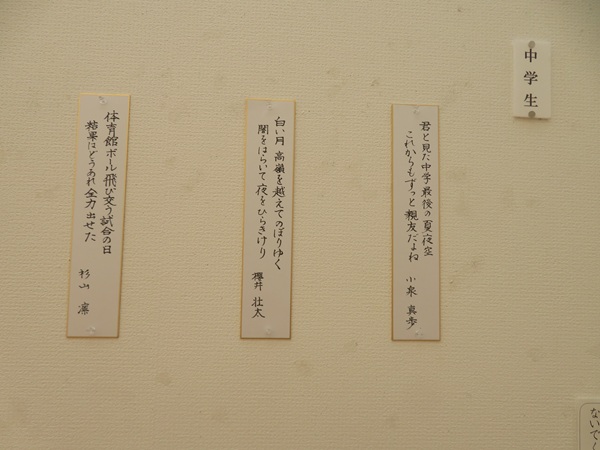 中学生
君と見た中学最後の夏夜空
これからもずっと親友だよね
小泉 真歩
白い月 高嶺を越えてのぼりゆく
闇をはらいて夜をひらきけり
櫻井 壮太
体育館ボール飛び交う試合の日
結果はどうあれ全力出せた
杉山 凛
ないでく